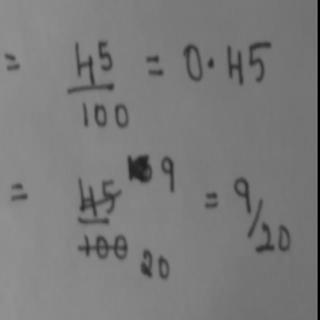 = 45/100 = 0.45
= 45/100 9 20 = 9/20